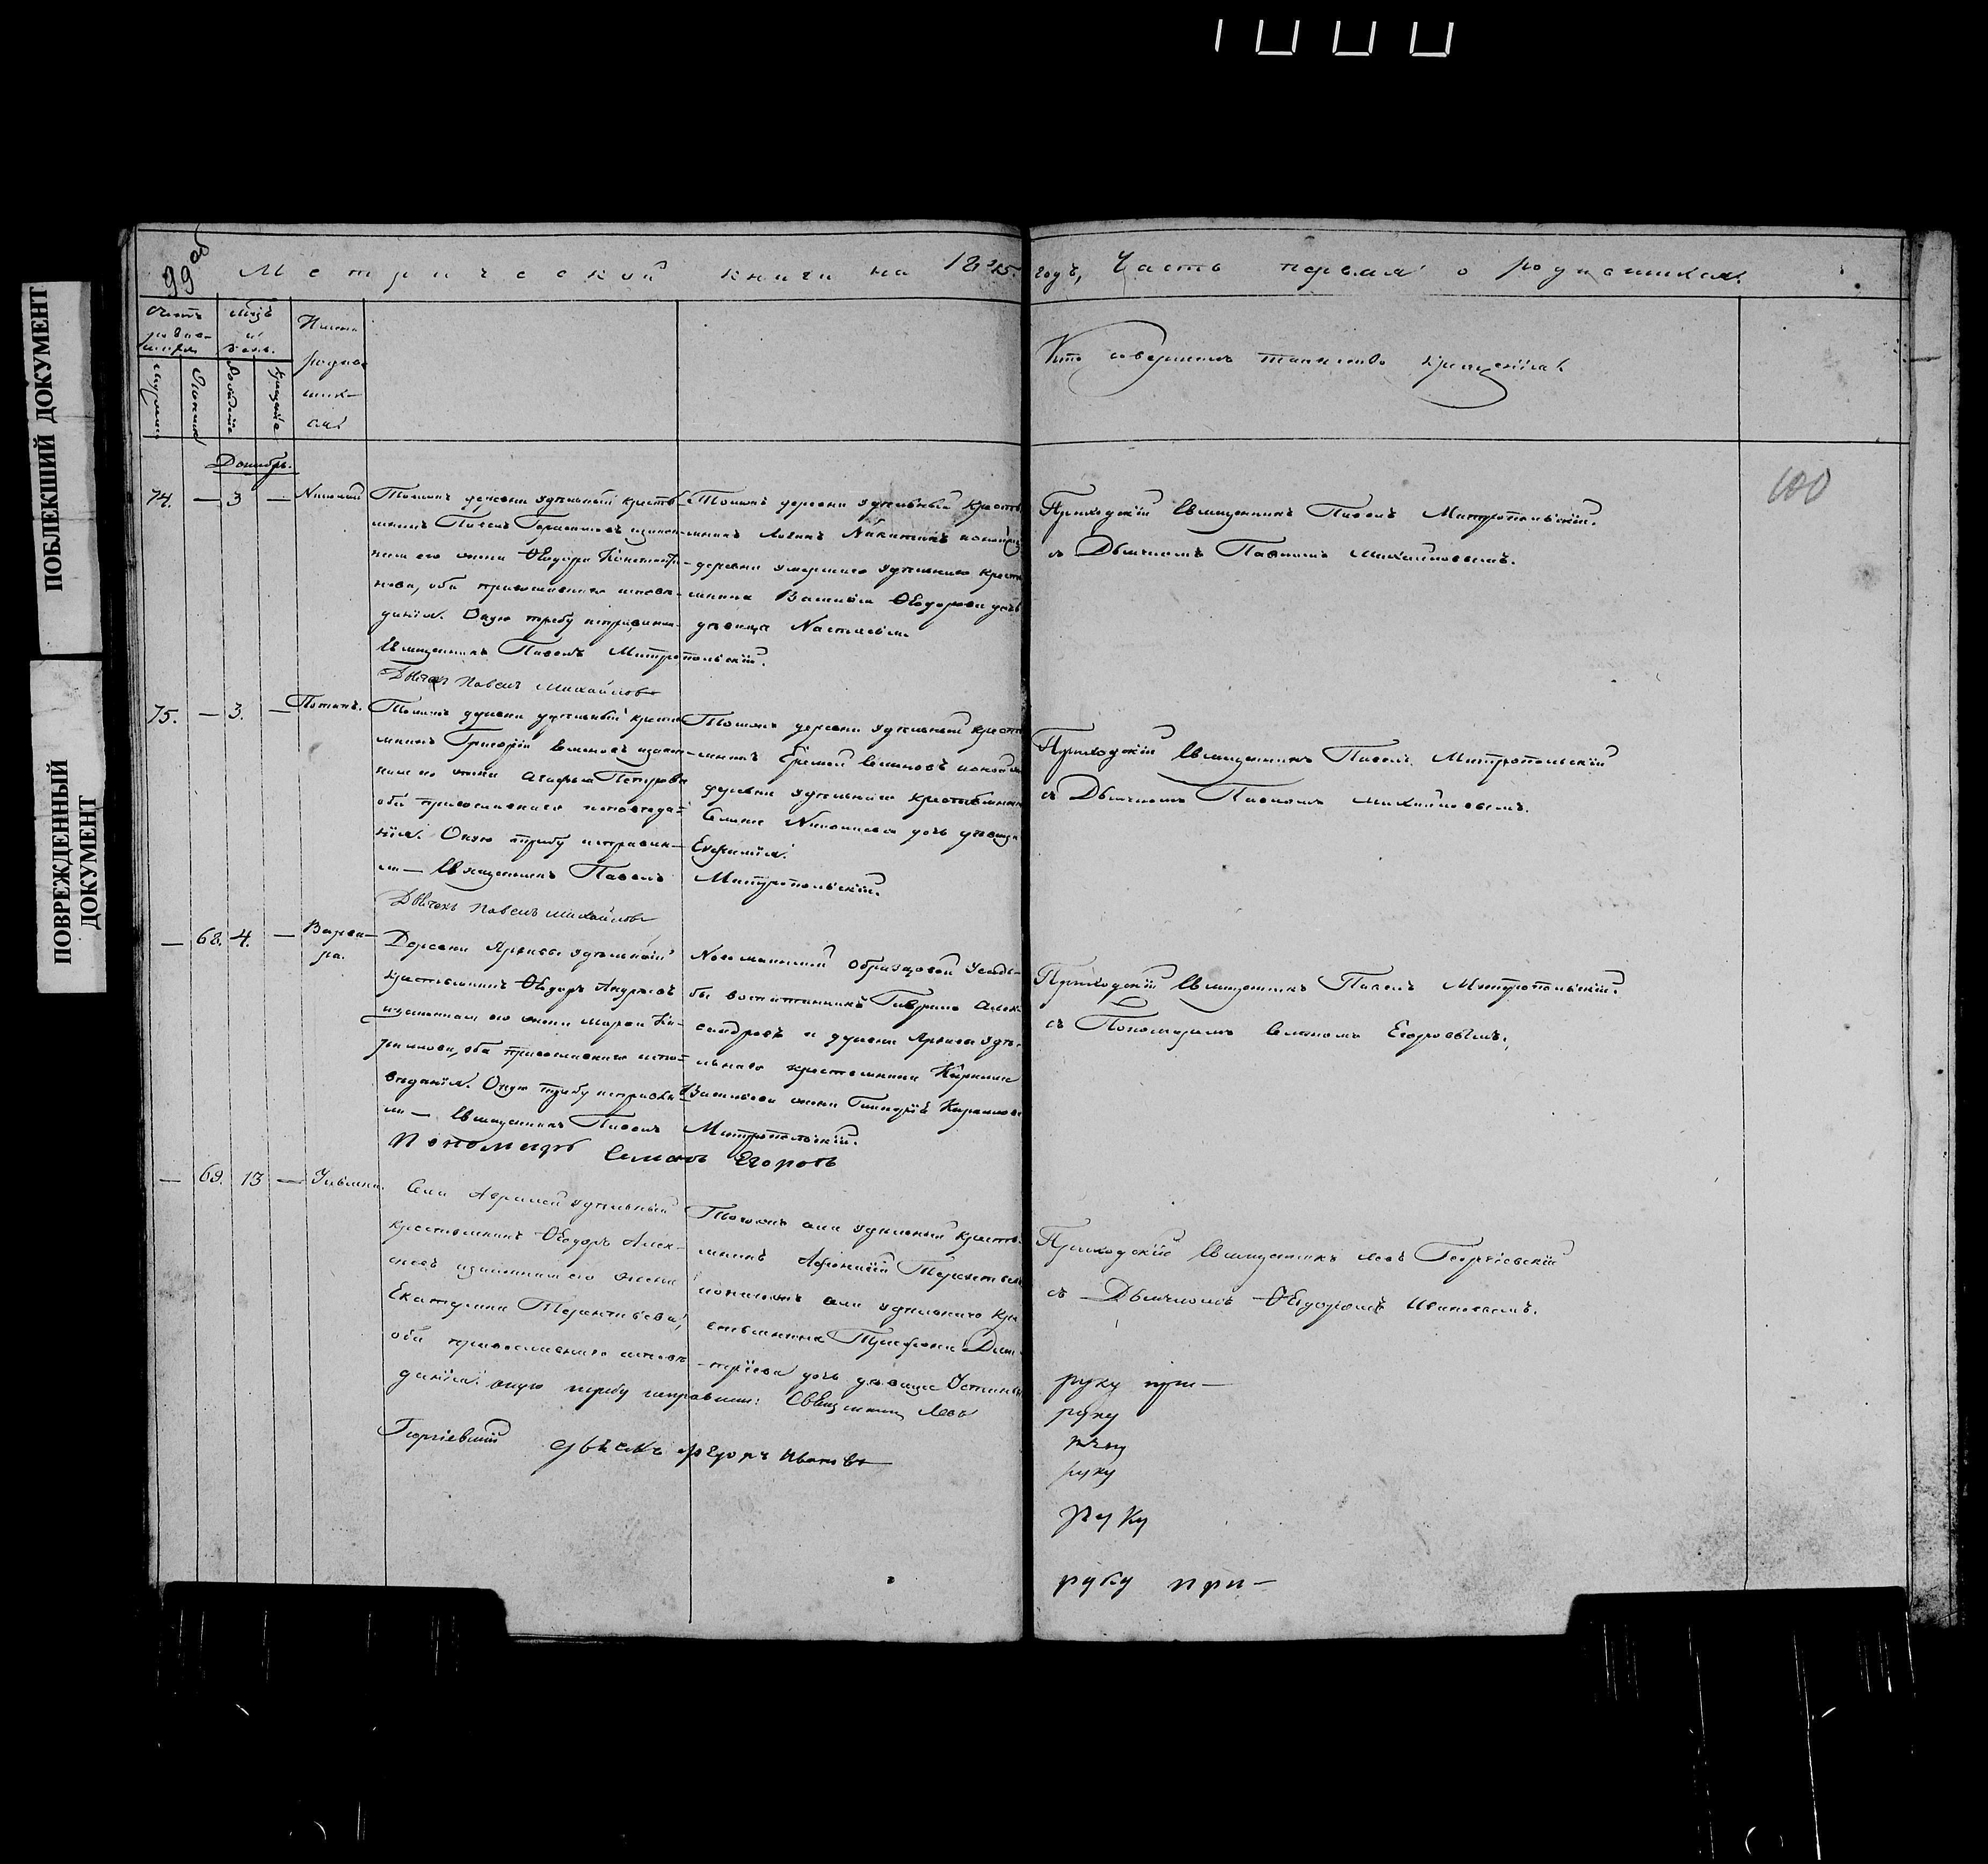 ПОБЛЕКШИЙ ДОКУМЕНТ
ПОВРЕЖДЕННЫЙ
ДОКУМЕНТ
99 об
Метрической книги на 1845 годъ, Часть первая о родившихся.
Имена
родив-
ших-
ся.
Кто совершалъ таинство крещенія
100
Декабрь.
74. — 3 — Николай
Тойже деревни удѣльный кресть-
янинъ Павелъ Герасимовъ законная
его жена Ѳедора Константи-
нова, оба православнаго исповѣ-
данія. Оную требу исправляли
Священникъ Павелъ Митропольскій.
Дьячекъ Павелъ Михайловъ
Тойже деревни удѣльный кресть-
янинъ Никитинъ и тойже
деревни умершаго удѣльнаго кресть
янина Василія Ѳедорова дочь
дѣвица Настасія.
Приходскій Священникъ Павелъ Митропольскій.
съ Дьячкомъ Павломъ Михайловымъ.
75. — 3. — Потапъ.
Тойже деревни удѣльный кресть
янинъ Григорій Семеновъ законная
его жена Агафья Петрова
оба православнаго исповѣда-
нія. Оную требу исправля-
ли — Священникъ Павелъ Митропольскій.
Дьячекъ Павелъ Михайловъ
Тойже деревни удѣльный кресть
янинъ Еремей Семеновъ и тойже
деревни удѣльнаго крестьянина
Семена Николаева дочь дѣвица
Евфимія.
Приходскій Священникъ Павелъ Митропольскій
съ Дьячкомъ Павломъ Михайловымъ.
— 68. 4. — Варва-
ра.
Деревни удѣльный
крестьянинъ Ѳедоръ Андреевъ
законная его жена Марья Ки-
рилова, оба православнаго испо-
вѣданія. Оную требу исправля
ли — Священникъ Павелъ Митропольскій.
Пономарь Семенъ Егоровъ
Образцовой Усадь-
бы воспитанникъ Гаврило Алек-
сандровъ и деревни удѣ-
льнаго крестьянина Кирилла
Васильева жена Кирилова
Приходскій Священникъ Павелъ Митропольскій.
съ Пономаремъ Семеномъ Егоровымъ.
— 69. 13 — Ульяна.
Села удѣльный
крестьянинъ Ѳедоръ Алек-
сѣевъ законная его жена
Екатерина Терентьева,
оба православнаго исповѣ-
данія. оную требу исправляли: Священникъ Левъ
Георгіевскій дьячекъ Ѳедоръ Ивановъ
Тогоже села удѣльный кресть-
янинъ Афонасій Терентьевъ
и тогоже села удѣльнаго кре
стьянина Трифона Дми-
тріева дочь дѣвица Устинья
Приходскій Священникъ Левъ Георгіевскій
съ Дьячкомъ Ѳедоромъ Ивановымъ.
руку при—
руку
руку
руку
руку при—